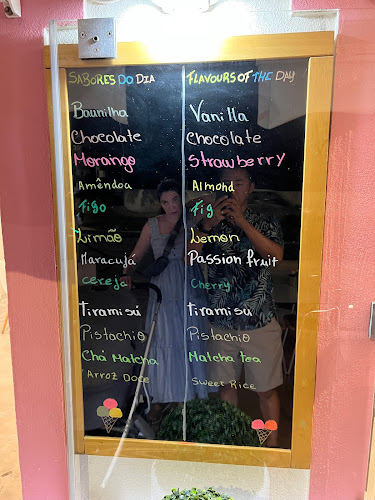 SABORES DO DIA
Baunilha
Chocolate
Morango
Amêndoa
Figo
Limão
Maracujá
cereja
Tiramisú
Pistachio
Chá Matcha
Arroz Doce
FLAVOURS OF THE DAY
Vanilla
Chocolate
Strawberry
Almond
Fig
Lemon
Passion fruit
Cherry
Tiramisú
Pistachio
Matcha tea
Sweet Rice